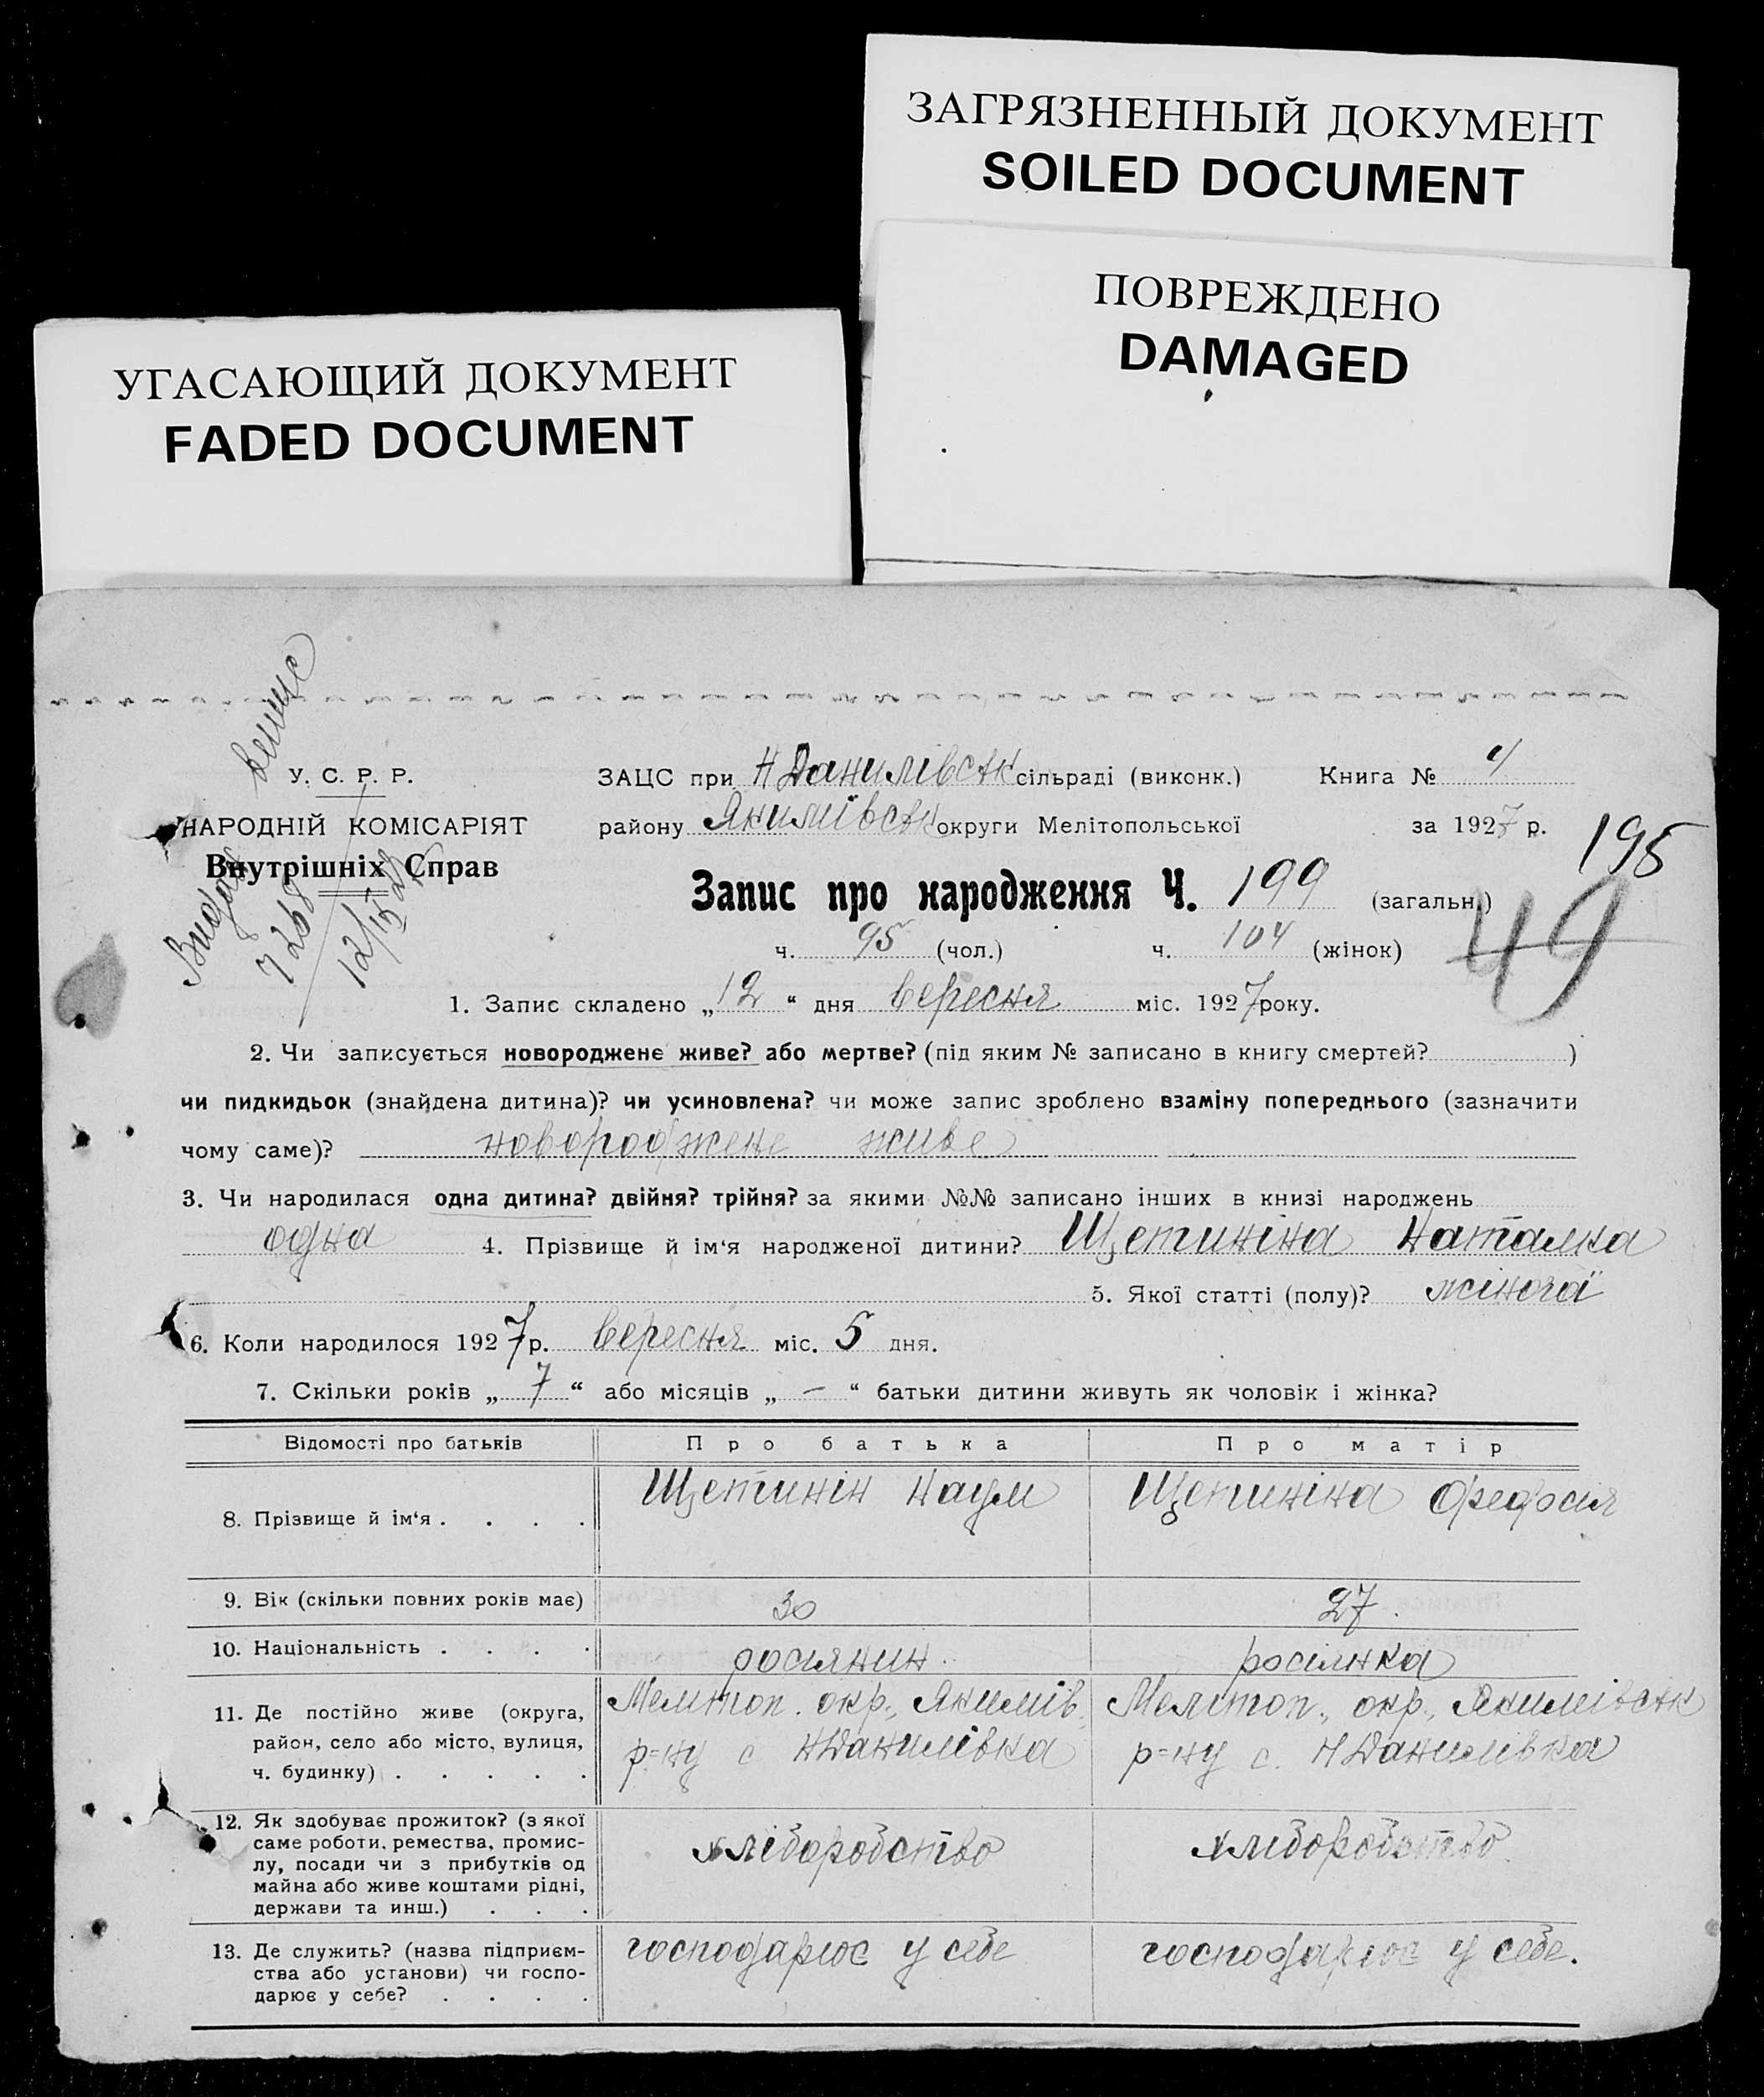 ЗАГРЯЗНЕННЫЙ ДОКУМЕНТ
SOILED DOCUMENT
ПОВРЕЖДЕНО
DAMAGED
УГАСАЮЩИЙ ДОКУМЕНТ
FADED DOCUMENT
У. С. Р. Р.
НАРОДНІЙ КОМІСАРІЯТ
Внутрішніх Справ
ЗАЦС при Н Данилівськ сільраді (виконк.) Книга №
району Якимівськ округи Мелітопольської за 1927 р.
195
Запис про народження Ч. 199 (загальн.)
49
ч. 95 (чол.) ч. 104 (жінок)
1. Запис складено „12“ дня вересня міс. 1927 року.
2. Чи записується новороджене живе? або мертве? (під яким № записано в книгу смертей? )
чи пидкидьок (знайдена дитина)? чи усиновлена? чи може запис зроблено взаміну попереднього (зазначити
чому саме)? новороджене живе
3. Чи народилася одна дитина? двійня? трійня? за якими №№ записано інших в книзі народжень
одна 4. Прізвище й ім‘я народженої дитини? Щетиніна Наталка
5. Якої статті (полу)? жіночої
6. Коли народилося 1927 р. вересня міс. 5 дня.
7. Скільки років „7“ або місяців „—“ батьки дитини живуть як чоловік і жінка?
Відомості про батьків Про батька Про матір
8. Прізвище й ім‘я . . . . Щетинін Наум Щетиніна Федосія
9. Вік (скільки повних років має) 30 27.
10. Національність . . . . росіянин. росіянка
11. Де постійно живе (округа,
район, село або місто, вулиця,
ч. будинку) . . . . .
Мелітоп. окр., Якимів.
р=ну с НДанилівка
Мелітоп., окр., Якимівськ
р=ну с. НДанилівка
12. Як здобуває прожиток? (з якої
саме роботи, ремества, промис-
лу, посади чи з прибутків од
майна або живе коштами рідні,
держави та инш.) . . .
хліборобство
хліборобство.
13. Де служить? (назва підприєм-
ства або установи) чи госпо-
дарює у себе? . . . .
господарює у себе
господарює у себе.